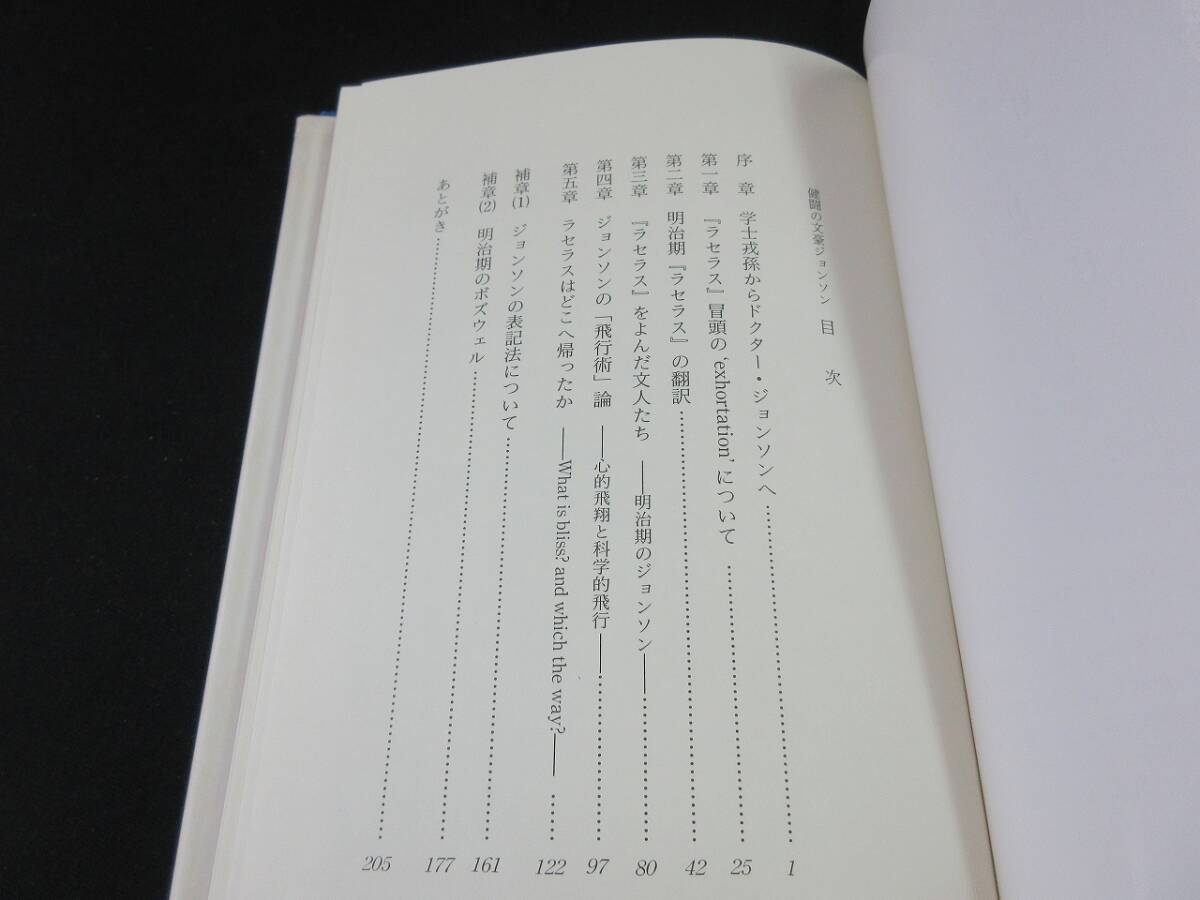 健闘の文豪ジョンソン 目 次
序 章 学士戎孫からドクター・ジョンソンへ……………………1
第一章 『ラセラス』冒頭の‘exhortation’について……………………25
第二章 明治期『ラセラス』の翻訳……………………42
第三章 『ラセラス』をよんだ文人たち ――明治期のジョンソン――……………………80
第四章 ジョンソンの「飛行術」論 ――心的飛翔と科学的飛行――……………………97
第五章 ラセラスはどこへ帰ったか ――What is bliss? and which the way?――……122
補章(1) ジョンソンの表記法について……………………161
補章(2) 明治期のボズウェル……………………177
あとがき……………………205